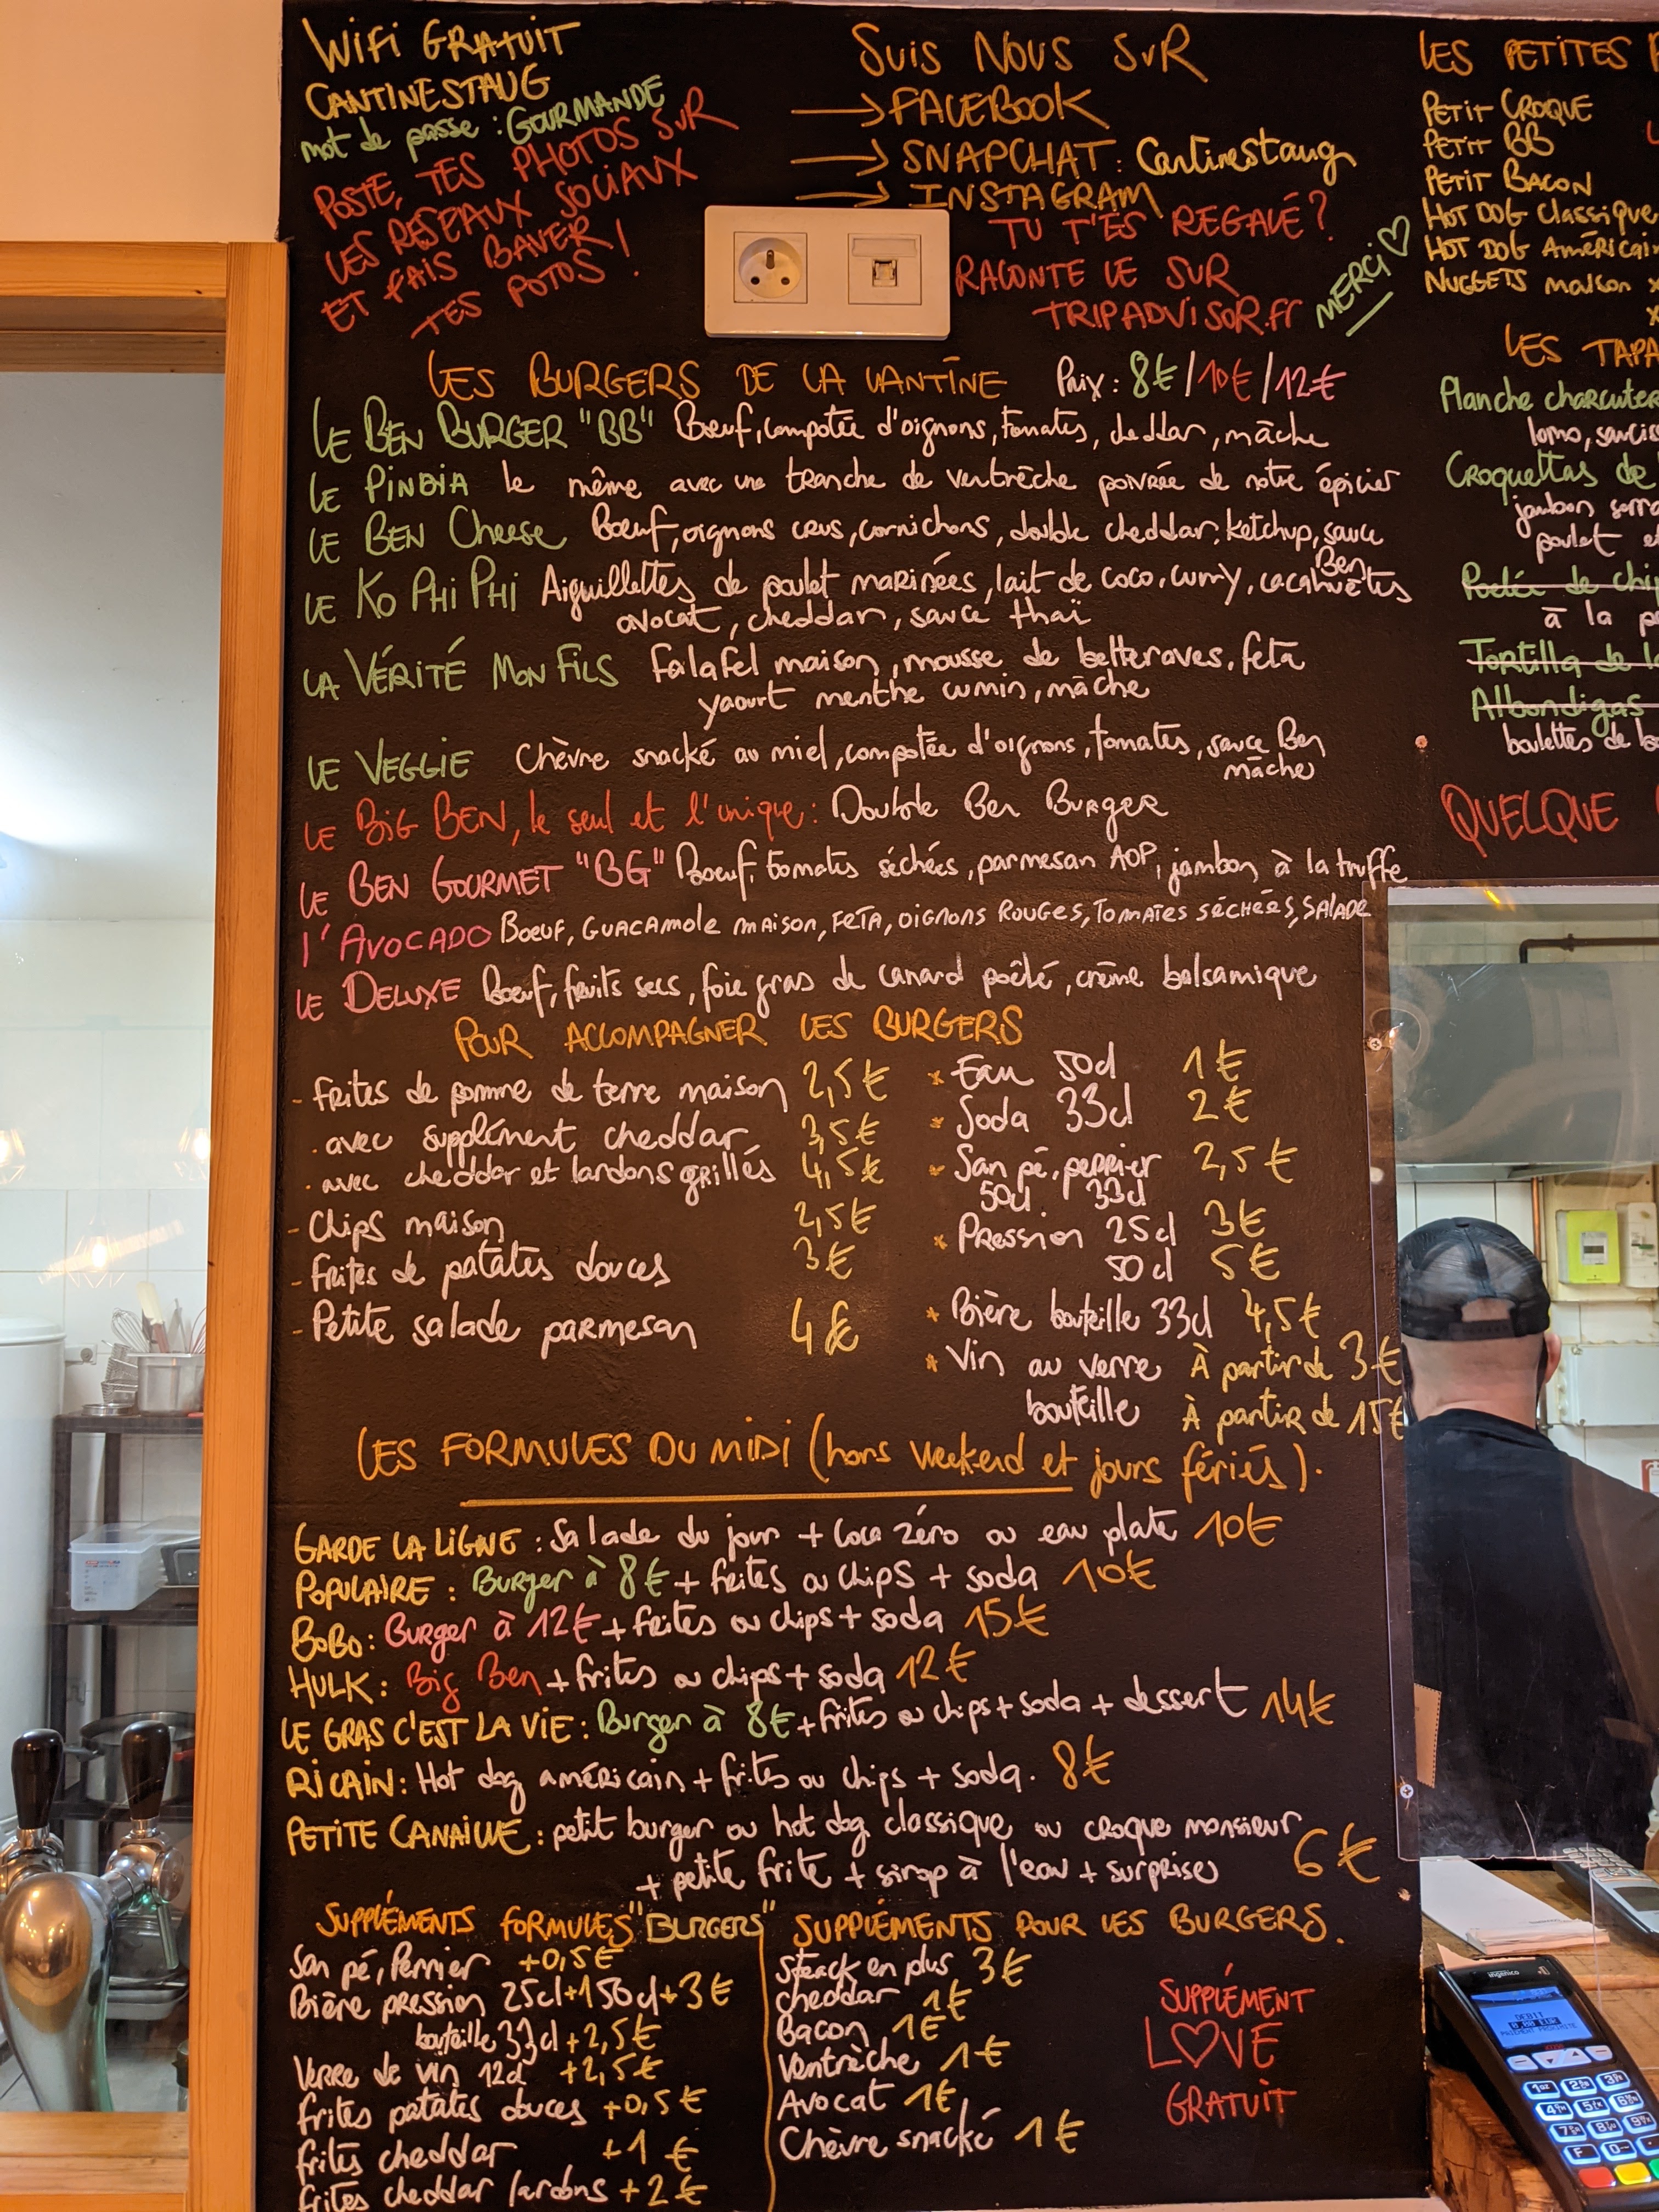 WIFI GRATUIT
CANTINESTAUG
mot de passe : GOURMANDE
POSTE, TES PHOTOS SUR
LES RESEAUX SOCIAUX
ET FAIS BAVER
TES POTOS !
SUIS NOUS SUR
→ FACEBOOK
→ SNAPCHAT : Cantinestaug
→ INSTAGRAM
TU T'ES REGALÉ ?
RACONTE LE SUR
TRIPADVISOR.fr
MERCI ♡
LES BURGERS DE LA CANTINE Prix : 8€ / 10€ / 12€
LE BEN BURGER "BB" Boeuf, compotée d'oignons, tomates, cheddar, mâche
LE PINDIA le même avec une tranche de ventrèche poivrée de notre épicier
LE BEN Cheese Boeuf, oignons crus, cornichons, double cheddar, ketchup, sauce Ben
LE KO PHI PHI Aiguillettes de poulet marinées, lait de coco, curry, cacahuètes
avocat, cheddar, sauce thaï
LA VÉRITÉ MON FILS Falafel maison, mousse de betteraves, feta
yaourt menthe cumin, mâche
LE VEGGIE Chèvre snacké au miel, compotée d'oignons, tomates, sauce Ben
mâche
LE BIG BEN, le seul et l'unique : Double Ben Burger
LE BEN GOURMET "BG" Boeuf, tomates séchées, parmesan AOP, jambon à la truffe
l'AVOCADO BOEUF, GUACAMOLE MAISON, FETA, OIGNONS ROUGES, TOMATES SÉCHÉES, SALADE
LE DELUXE Boeuf, fruits secs, foie gras de canard poêlé, crème balsamique
POUR ACCOMPAGNER LES BURGERS
- Frites de pomme de terre maison 2,5€
. avec supplément cheddar 3,5€
. avec cheddar et lardons grillés 4,5€
- Chips maison 2,5€
- Frites de patates douces 3€
- Petite salade parmesan 4€
* Eau 50cl 1€
* Soda 33cl 2€
* San pé, perrier 2,5€
50cl / 33cl
* Pression 25cl 3€
50cl 5€
* Bière bouteille 33cl 4,5€
* Vin au verre À partir de 3€
bouteille À partir de 15€
LES FORMULES DU MIDI (hors weekend et jours fériés).
GARDE LA LIGNE : Salade du jour + Coca zéro ou eau plate 10€
POPULAIRE : Burger à 8€ + frites ou chips + soda 10€
BOBO : Burger à 12€ + frites ou chips + soda 15€
HULK : Big Ben + frites ou chips + soda 12€
LE GRAS C'EST LA VIE : Burger à 8€ + frites ou chips + soda + dessert 14€
RICAIN : Hot dog américain + frites ou chips + soda. 8€
PETITE CANAILLE : petit burger ou hot dog classique ou croque monsieur
+ petite frite + sirop à l'eau + surprise 6€
SUPPLÉMENTS FORMULES "BURGERS"
San pé, Perrier +0,5€
Bière pression 25cl+1 50cl+3€
bouteille 33cl +2,5€
Verre de vin 12cl +2,5€
frites patates douces +0,5€
frites cheddar +1 €
frites cheddar lardons +2€
SUPPLÉMENTS POUR LES BURGERS.
Steack en plus 3€
Cheddar 1€
Bacon 1€
Ventrèche 1€
Avocat 1€
Chèvre snacké 1€
SUPPLÉMENT
L♡VE
GRATUIT
LES PETITES
PETIT CROQUE
PETIT BB
PETIT BACON
HOT DOG Classique
HOT DOG Américain
NUGGETS maison
LES TAPA
Planche charcuter
lomo, saucis
Croquettas de
jambon serra
poulet
Poêlée de chip
à la
Tortilla de
Albondigas
boulettes de
QUELQUE
ingenico
DEBIT
0,00 EUR